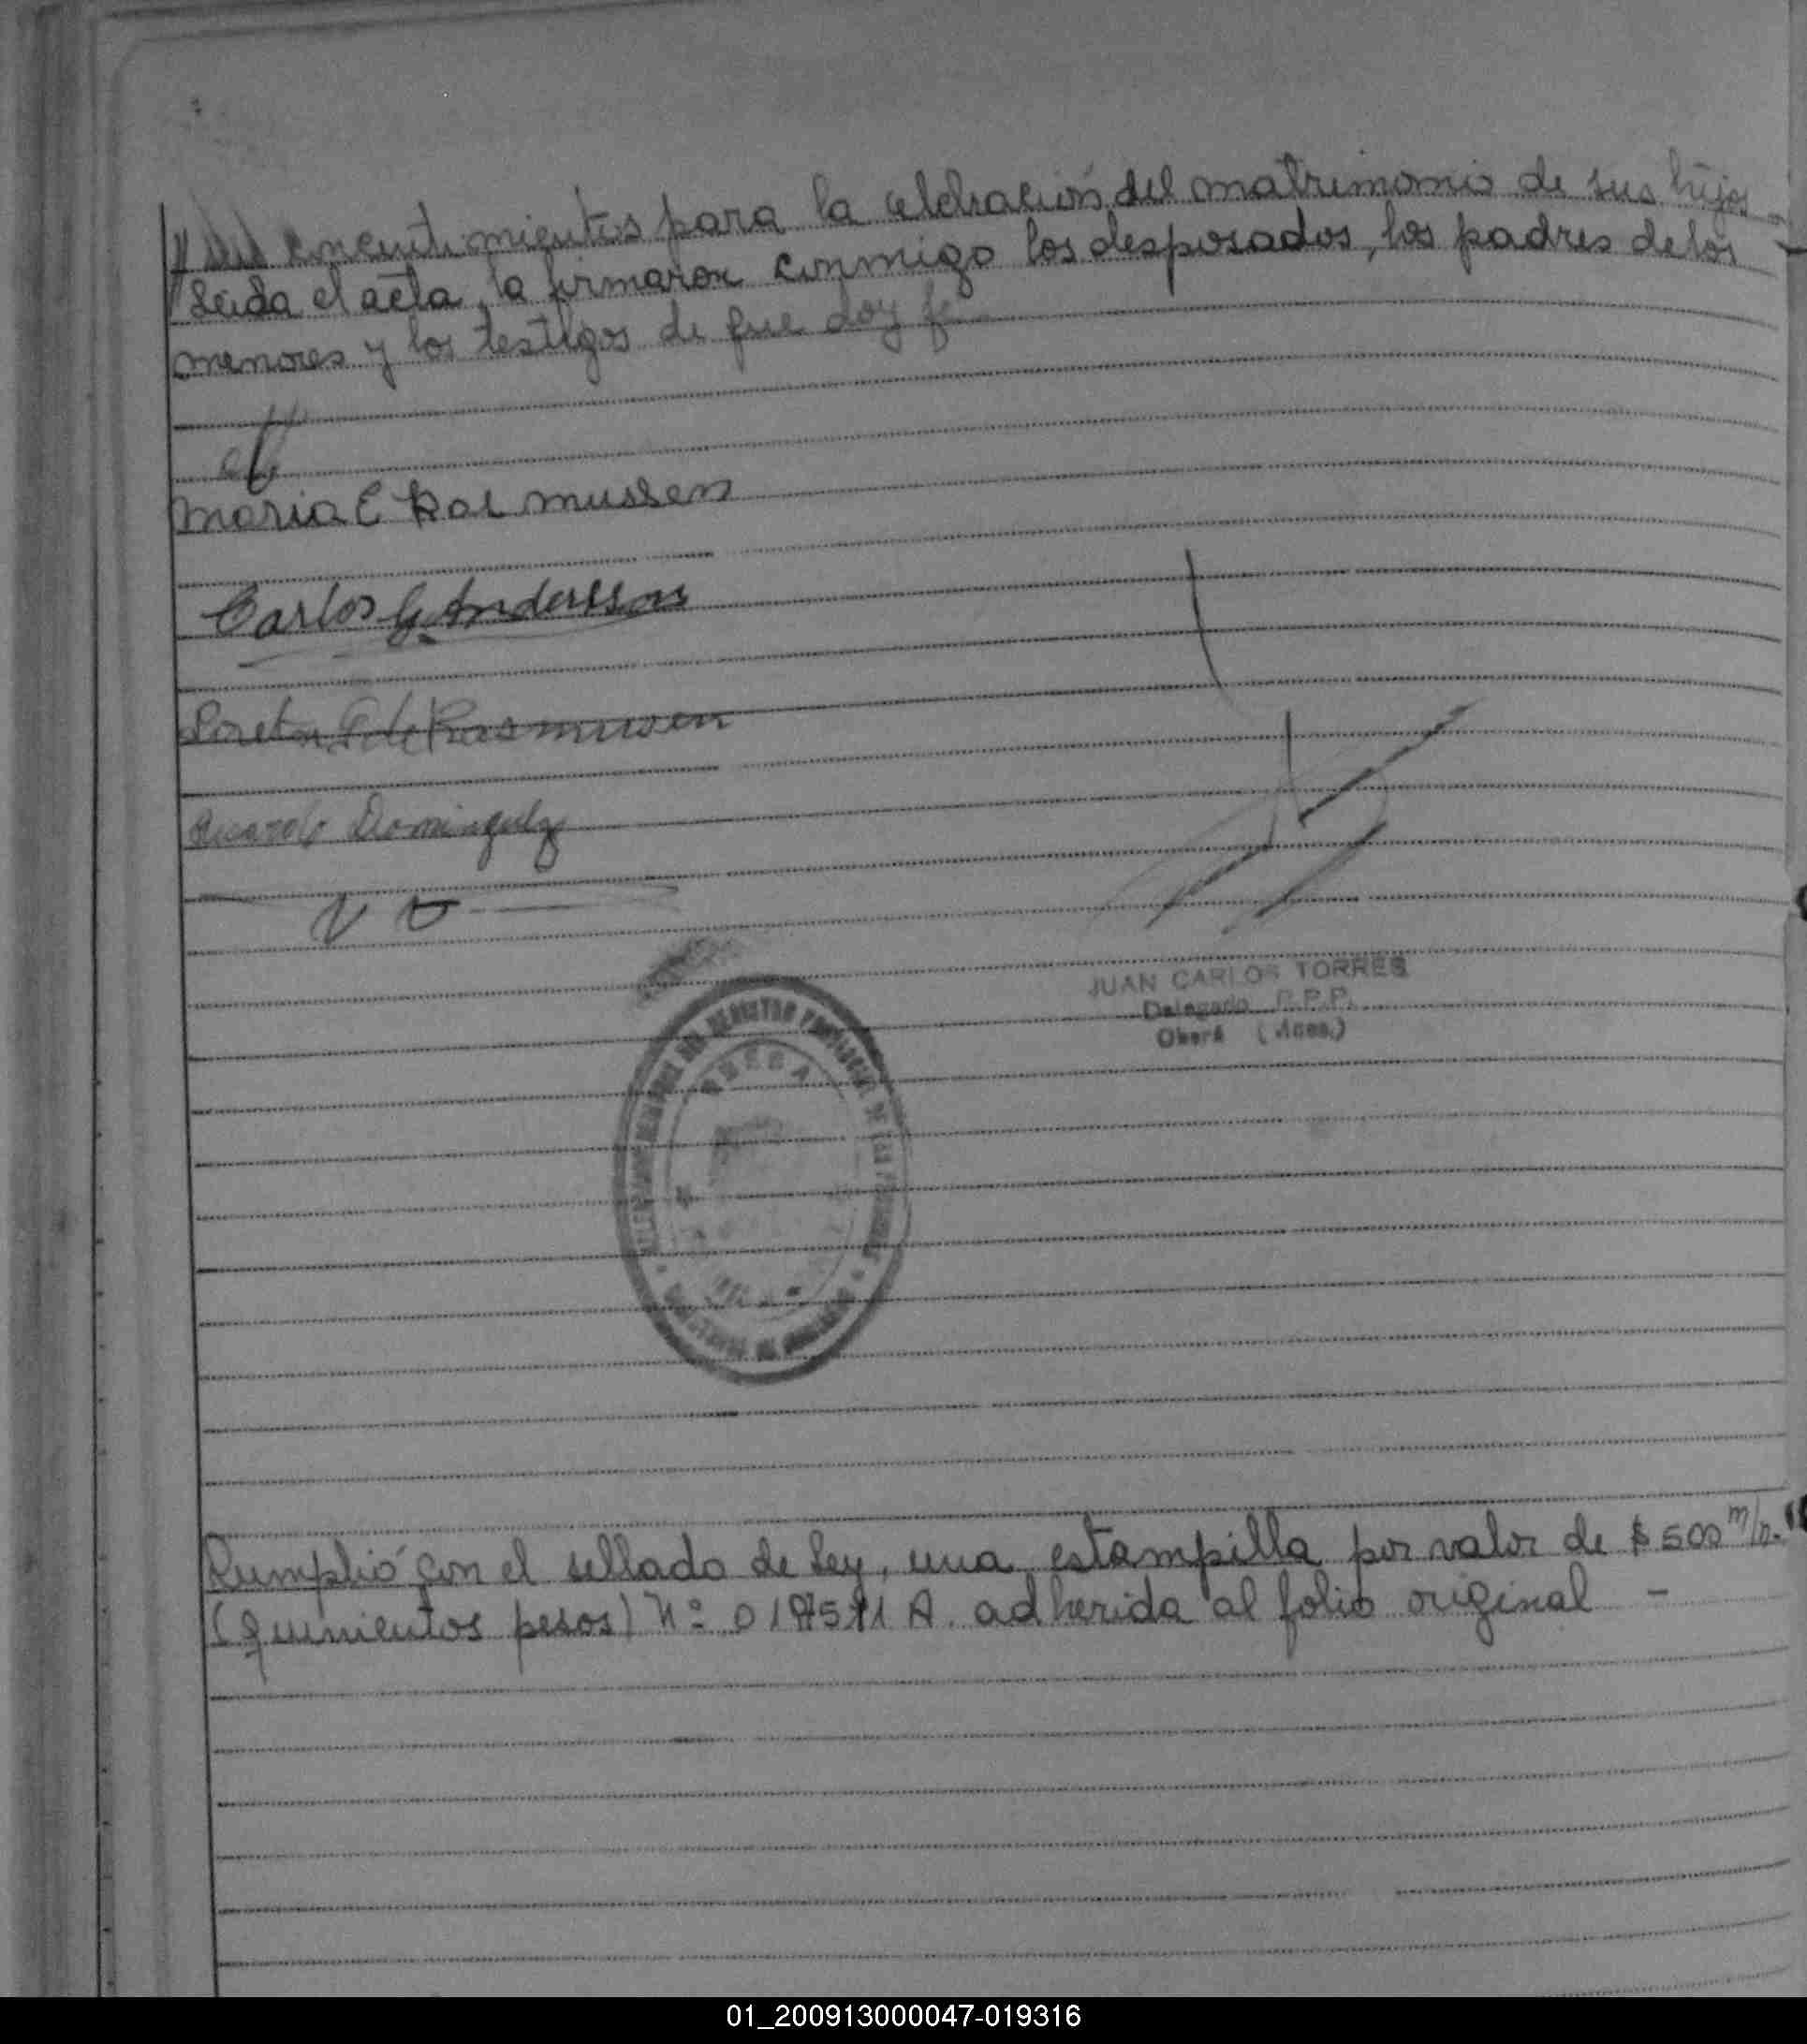 // sus consentimientos para la celebración del matrimonio de sus hijos
Leida el acta, la firmaron conmigo los desposados, los padres de los
menores y los testigos de que doy fe
Maria E Rasmussen
Carlos G. Anderssen
Loreta F. de Rasmussen
Ricardo Dominguez
JUAN CARLOS TORRES
Delegado R.P.P.
Oberá (Mnes.)
REGISTRO PROVINCIAL DE LAS PERSONAS
Cumplió con el sellado de Ley, una estampilla por valor de $ 500 m/n.
(quinientos pesos) Nº A. adherida al folio original —
01_200913000047-019316